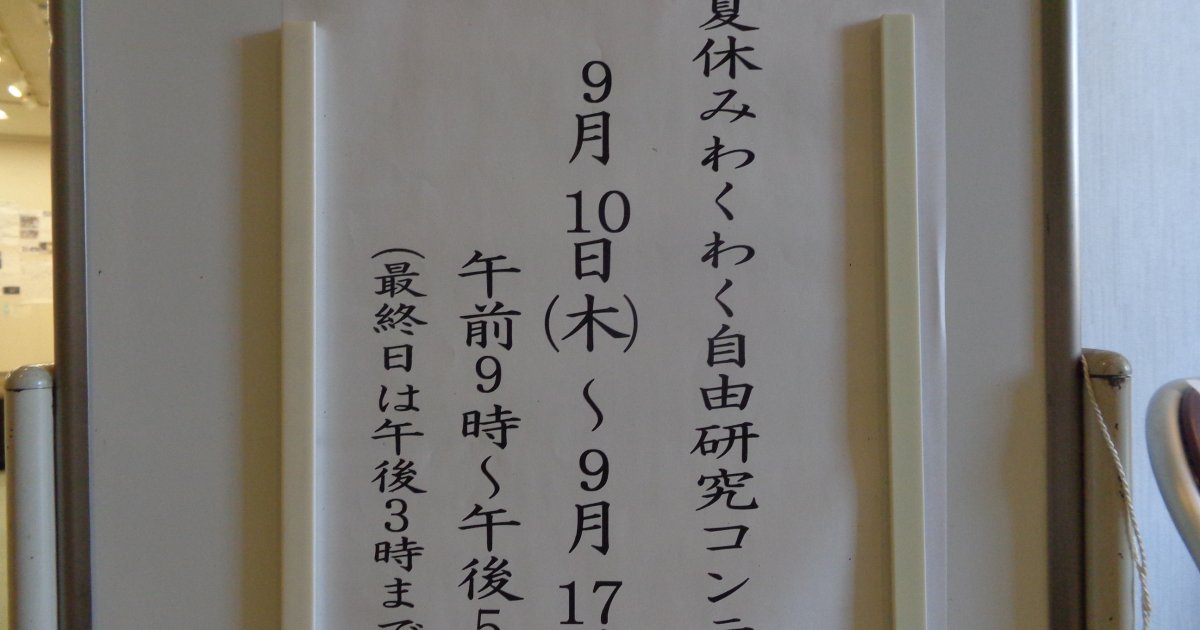 夏休みわくわく自由研究コン
9月10日(木)~9月17
午前9時~午後5
(最終日は午後3時まで